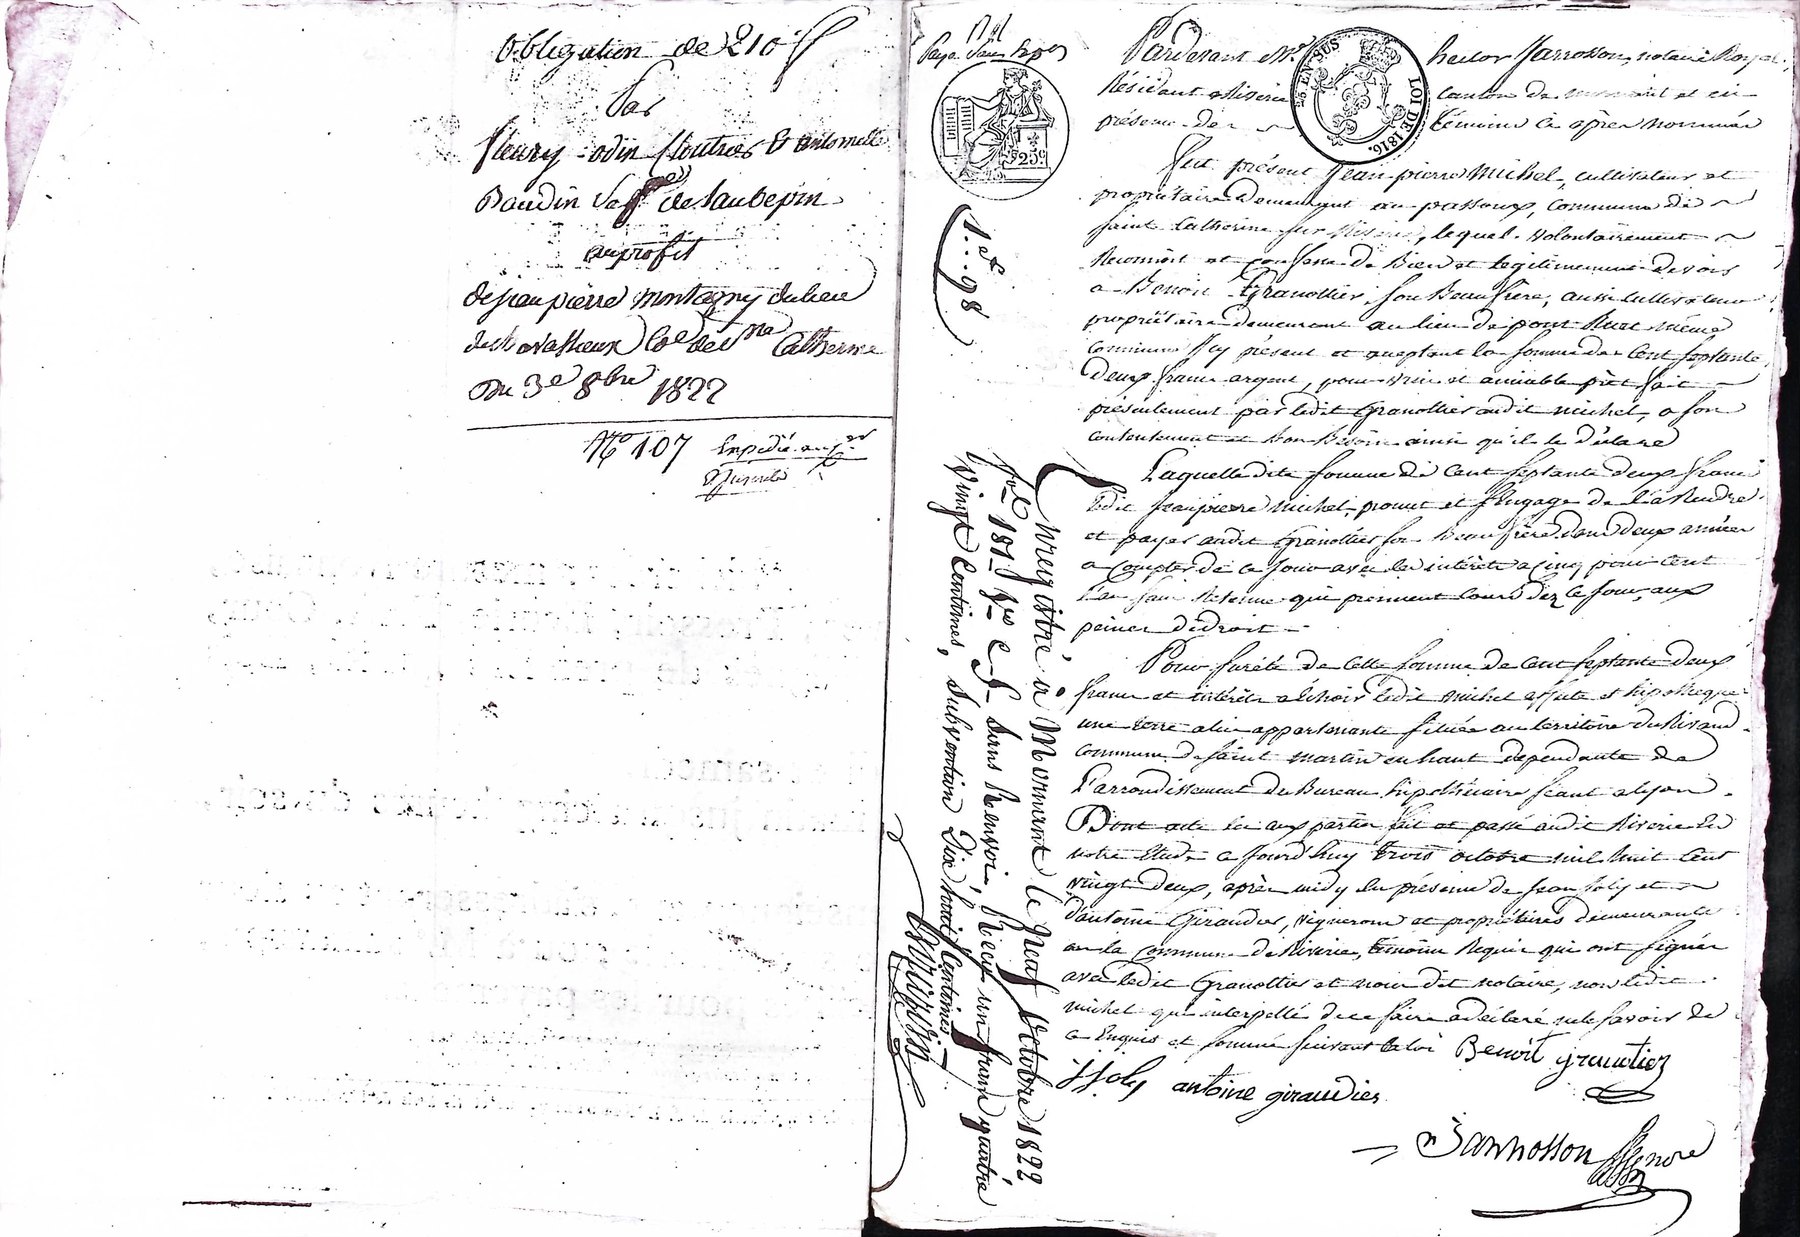 Obligation de 210 ff
Par
fleury odin Cloutier & antoinette
Baudin de Laubepin
au profit
de jean pierre montagny du lieu
Coe de Ste Catherine
Du 3e 8bre 1822
No 107 Expédié
Pardevant Me hector Jarrosson, notaire Royal,
Résidant a Riverie canton de mornant et en
présence des témoins cy après nommés
25 EN SUS
LOI DE 1816.
25c
1..98
Fut présent Jean pierre Michel, cultivateur et
propriétaire demeurant au passoux, commune de
Saint Catherine sur Riverie, lequel volontairement
Reconnoit et confesse de Bien et legitimement devoir
a Benoit Granottier son Beaufrère, aussi cultivateur
propriétaire demeurant au lieu de pont Rure même
commune icy présent et aceptant la somme de Cent septante
deux francs argent, pour vrai et amiable prêt fait
présentement par ledit Granottier audit michel, a son
contentement et bon Besoin ainsi qu'il le déclare
Laquelle dite somme de Cent septante deux francs
ledit jean pierre michel, promet et s'engage de la Rendre
et payer audit Granottier son Beaufrère dans deux années
a compter de ce jour avec les intérêts a cinq pour cent
l'an sans Retenue qui prennent cours dez ce jour, aux
peines de droit
Pour sureté de cette somme de cent septante deux
francs et intérêts a échoir ledit michel affecte et hipotheque
une terre a lui appartenante située au territoire du
commune de saint martin en haut dependante de
l'arrondissement du Bureau hipothécaire séant a lyon.
Dont acte lu aux parties fait et passé audit Riverie En
notre Etude a jourd'huy trois octobre mil huit cent
vingt deux, après midy En présence de jean joly et
d'antoine Giraudier, vignerons et propriétaires demeurants
en la commune de Riverie, témoins Requis qui ont signés
avec ledit Granottier et nous dit notaire, non ledit
michel qui interpellé de ce faire a déclaré ne le savoir de
ce Enquis et sommé suivant la loi Benoit granotier
J Joly antoine giraudier
Jarrosson
Enregistré à Mornant le neuf Octobre 1822
fol. 181 Vo C. 5 sans Renvoi, Reçu un franc quatre
Vingt Centimes, Subvention Dix huit Centimes